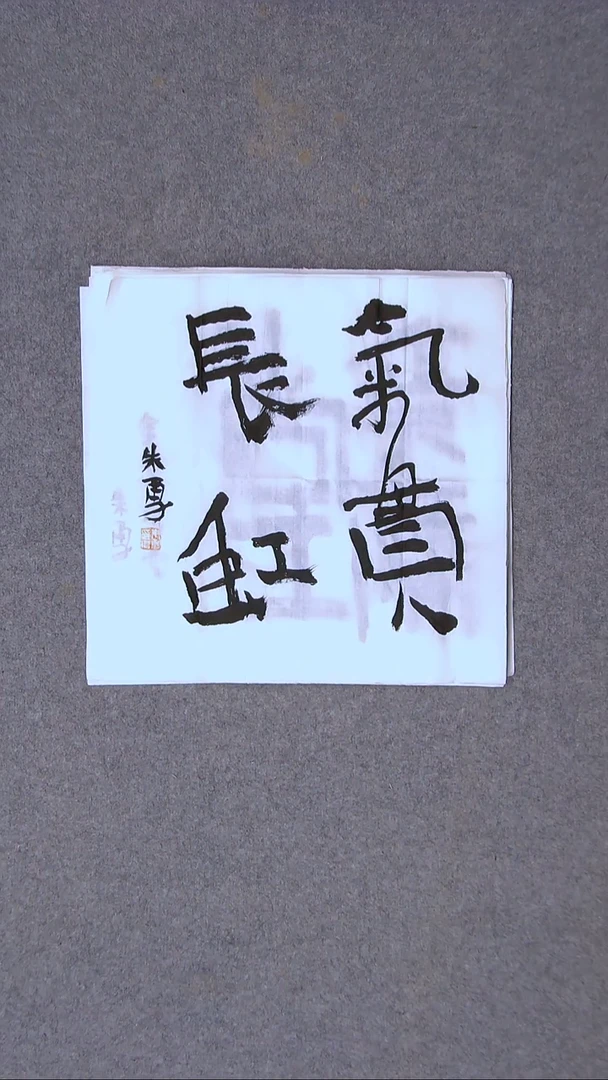 氣貫
長虹
朱勇